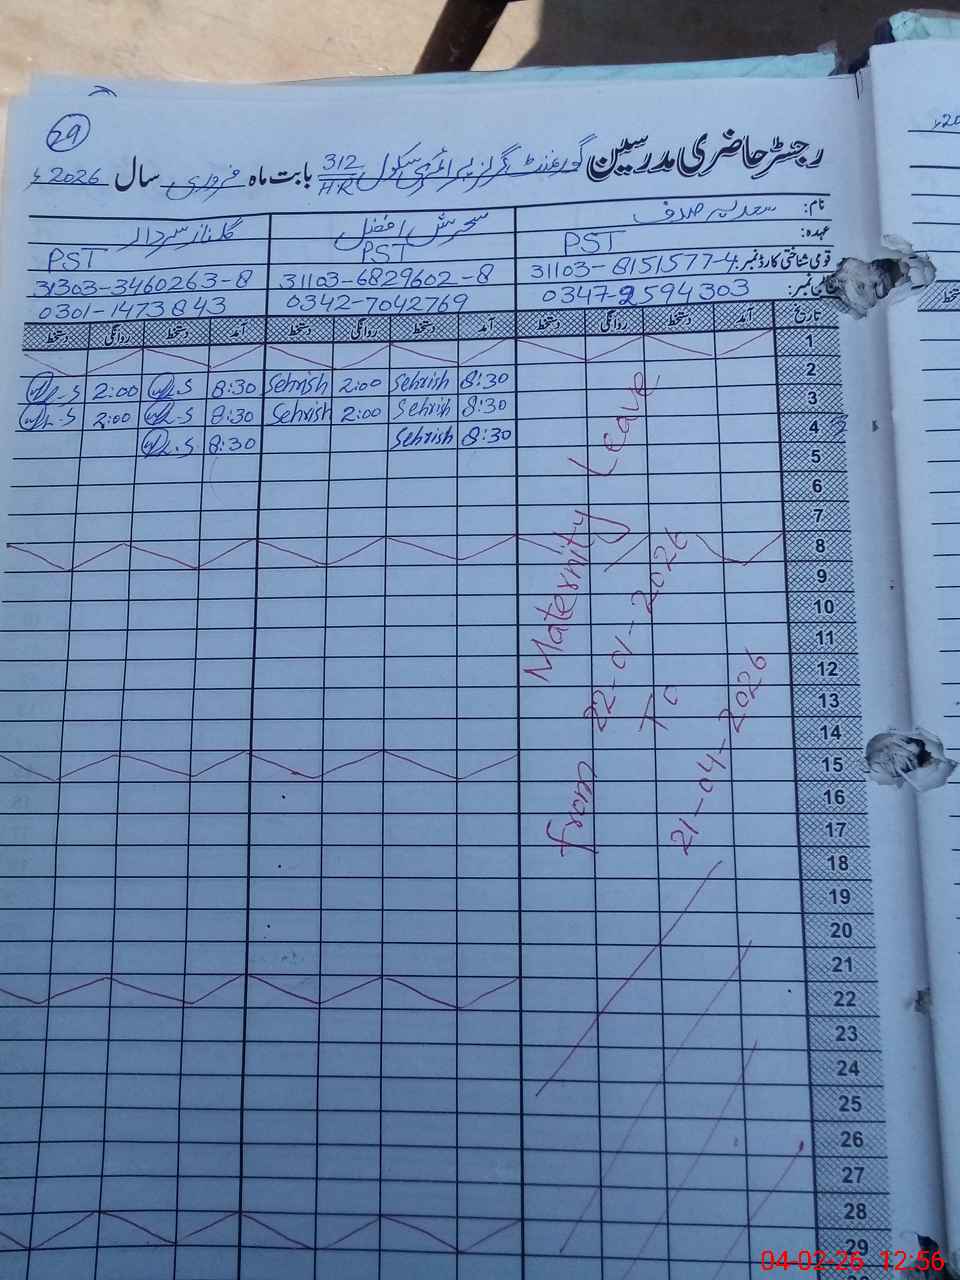 29
رجسٹر حاضری مدرسین گورنمنٹ گرلز پرائمری سکول 312/HR بابت ماہ فروری سال 2026ء
نام: سعدیہ صدف سحرش افضل گلناز سردار
عہدہ: PST PST PST
قومی شناختی کارڈ نمبر: 31103-8151577-4 31103-6829602-8 31303-3460263-8
نمبر: 0347-2594303 0342-7042769 0301-1473843
تاریخ آمد دستخط روانگی دستخط آمد دستخط روانگی دستخط آمد دستخط روانگی دستخط
1
2 8:30 Sehrish 2:00 Sehrish 8:30 2:00
3 8:30 Sehrish 2:00 Sehrish 8:30 2:00
4 8:30 Sehrish 8:30
5
6
7
8
9
10
11
12
13
14
15
16
17
18
19
20
21
22
23
24
25
26
27
28
29
Maternity Leave
From 22-01-2026
To
21-04-2026
04-02-26 12:56